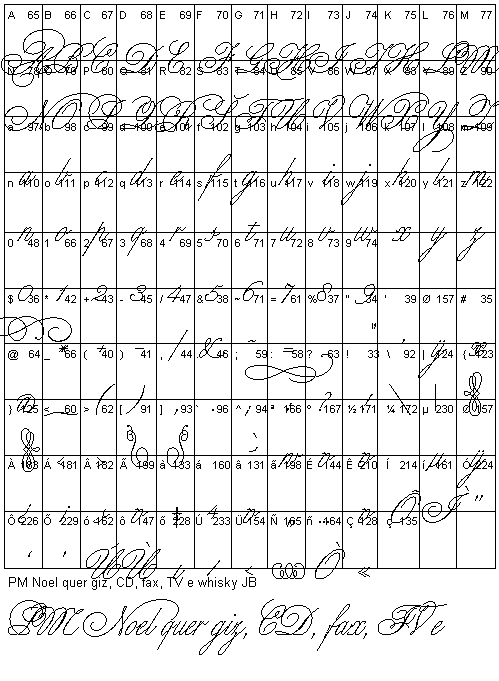 A 65 B 66 C 67 D 68 E 69 F 70 G 71 H 72 I 73 J 74 K 75 L 76 M 77
A B C D E F G H I J K L M
N 78 O 79 P 80 Q 81 R 82 S 83 T 84 U 85 V 86 W 87 X 88 Y 89 Z 90
N O P Q R S T U V W X Y Z
a 97 b 98 c 99 d 100 e 101 f 102 g 103 h 104 i 105 j 106 k 107 l 108 m 109
a b c d e f g h i j k l m
n 110 o 111 p 112 q 113 r 114 s 115 t 116 u 117 v 118 w 119 x 120 y 121 z 122
n o p q r s t u v w x y z
0 48 1 66 2 67 3 68 4 69 5 70 6 71 7 72 8 73 9 74
0 1 2 3 4 5 6 7 8 9
$ 36 * 42 + 43 - 45 / 47 & 38 ~ 71 = 61 % 37 " 34 ' 39 Ø 157 # 35
@ 64 _ 66 ( 40 ) 41 , 44 . 46 ; 59 : 58 ? 63 ! 33 \ 92 | 124 { 123
} 125 < 60 > 62 [ 91 ] 93 ` 96 ^ 94 ª 166 º 167 ½ 171 ¼ 172 µ 230 Ø 157
À 183 Á 181 Â 182 Ã 199 à 133 á 160 â 131 ã 198 É 144 Ê 210 Í 214 í 161 ó 224
Ô 226 Õ 229 ó 162 ô 147 õ 228 Ú 233 Ü 154 Ñ 165 ñ 164 Ç 128 ç 135
PM Noel quer giz, CD, fax, TV e whisky JB
PM Noel quer giz, CD, fax, TV e